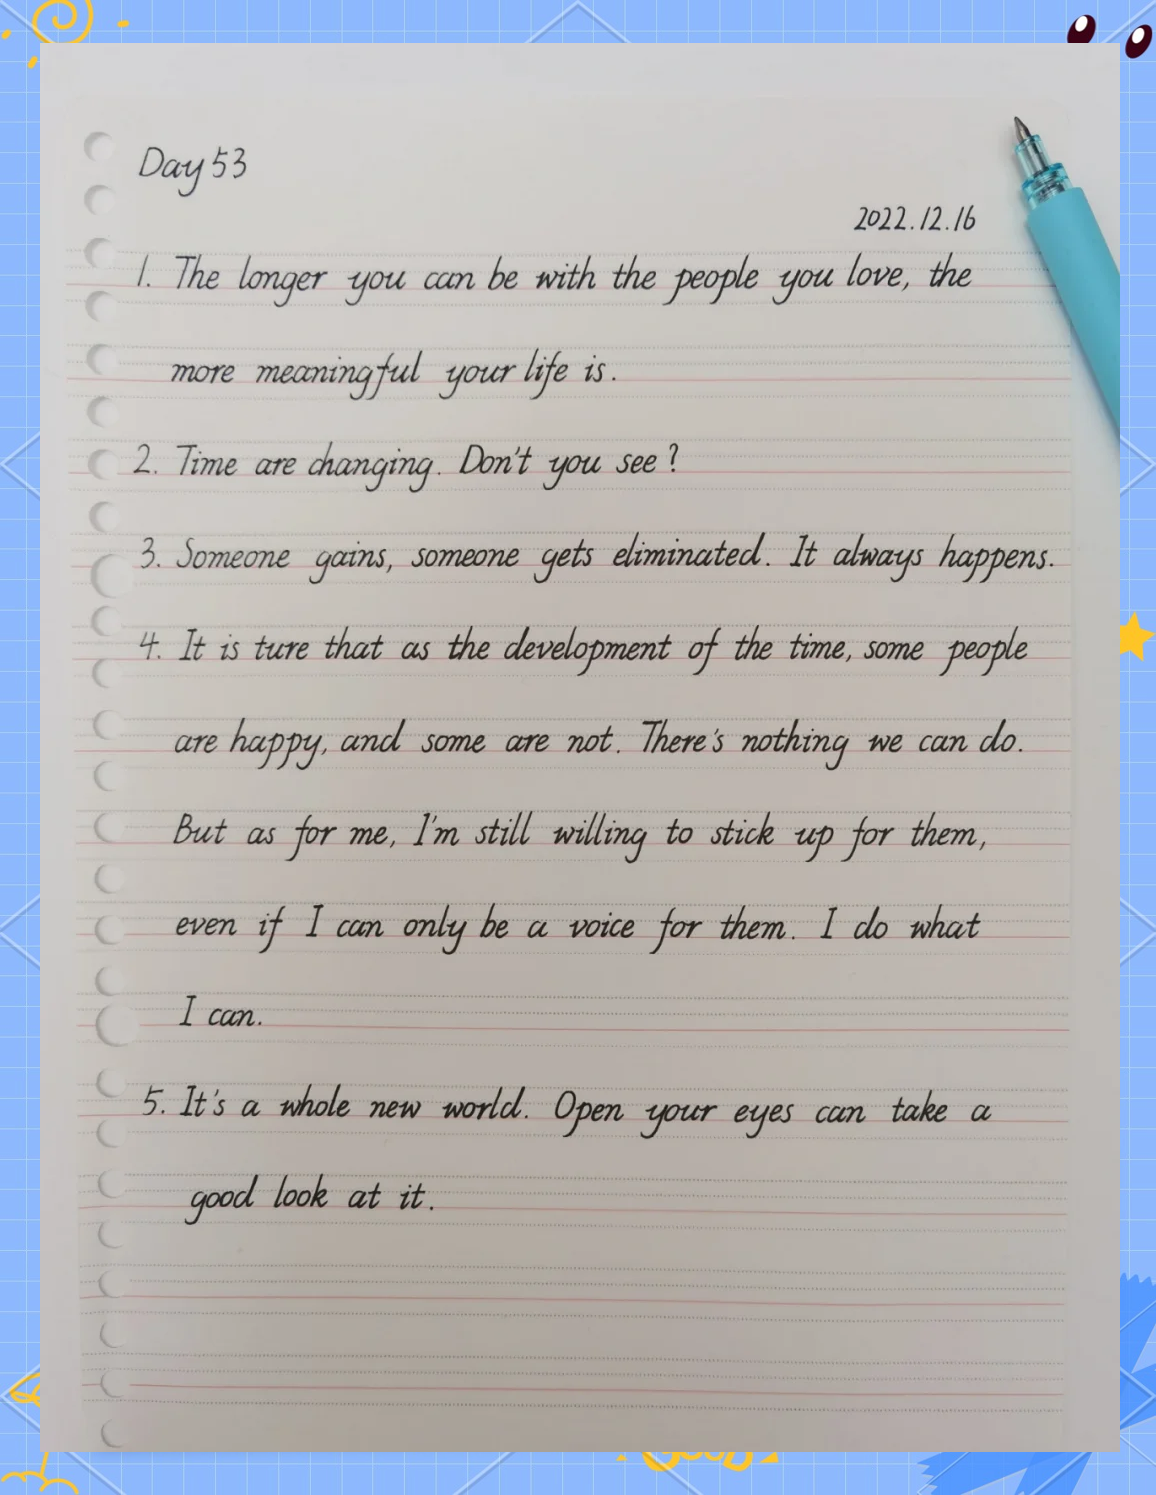 Day 53
2022.12.16
1. The longer you can be with the people you love, the
more meaningful your life is.
2. Time are changing. Don't you see?
3. Someone gains, someone gets eliminated. It always happens.
4. It is ture that as the development of the time, some people
are happy, and some are not. There's nothing we can do.
But as for me, I'm still willing to stick up for them,
even if I can only be a voice for them. I do what
I can.
5. It's a whole new world. Open your eyes can take a
good look at it.
GOOD